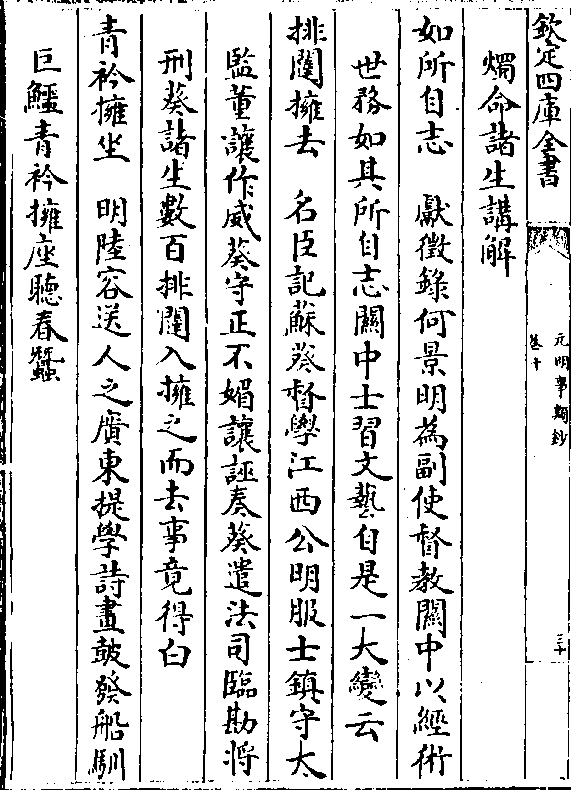 欽定四庫全書
元明事類鈔
卷十
三十
燭命諸生講解
如所自志　獻徵錄何景明為副使督教關中以經術
世務如其所自志關中士習文藝自是一大變云
排闥擁去　名臣記蘇葵督學江西公明服士鎮守太
監董讓作威葵守正不媚讓誣奏葵遣法司臨勘將
刑葵諸生數百排闥入擁之而去事竟得白
青衿擁坐　明陸容送人之廣東提學詩畫鼓發船馴
巨鱷青衿擁座聽春蠶